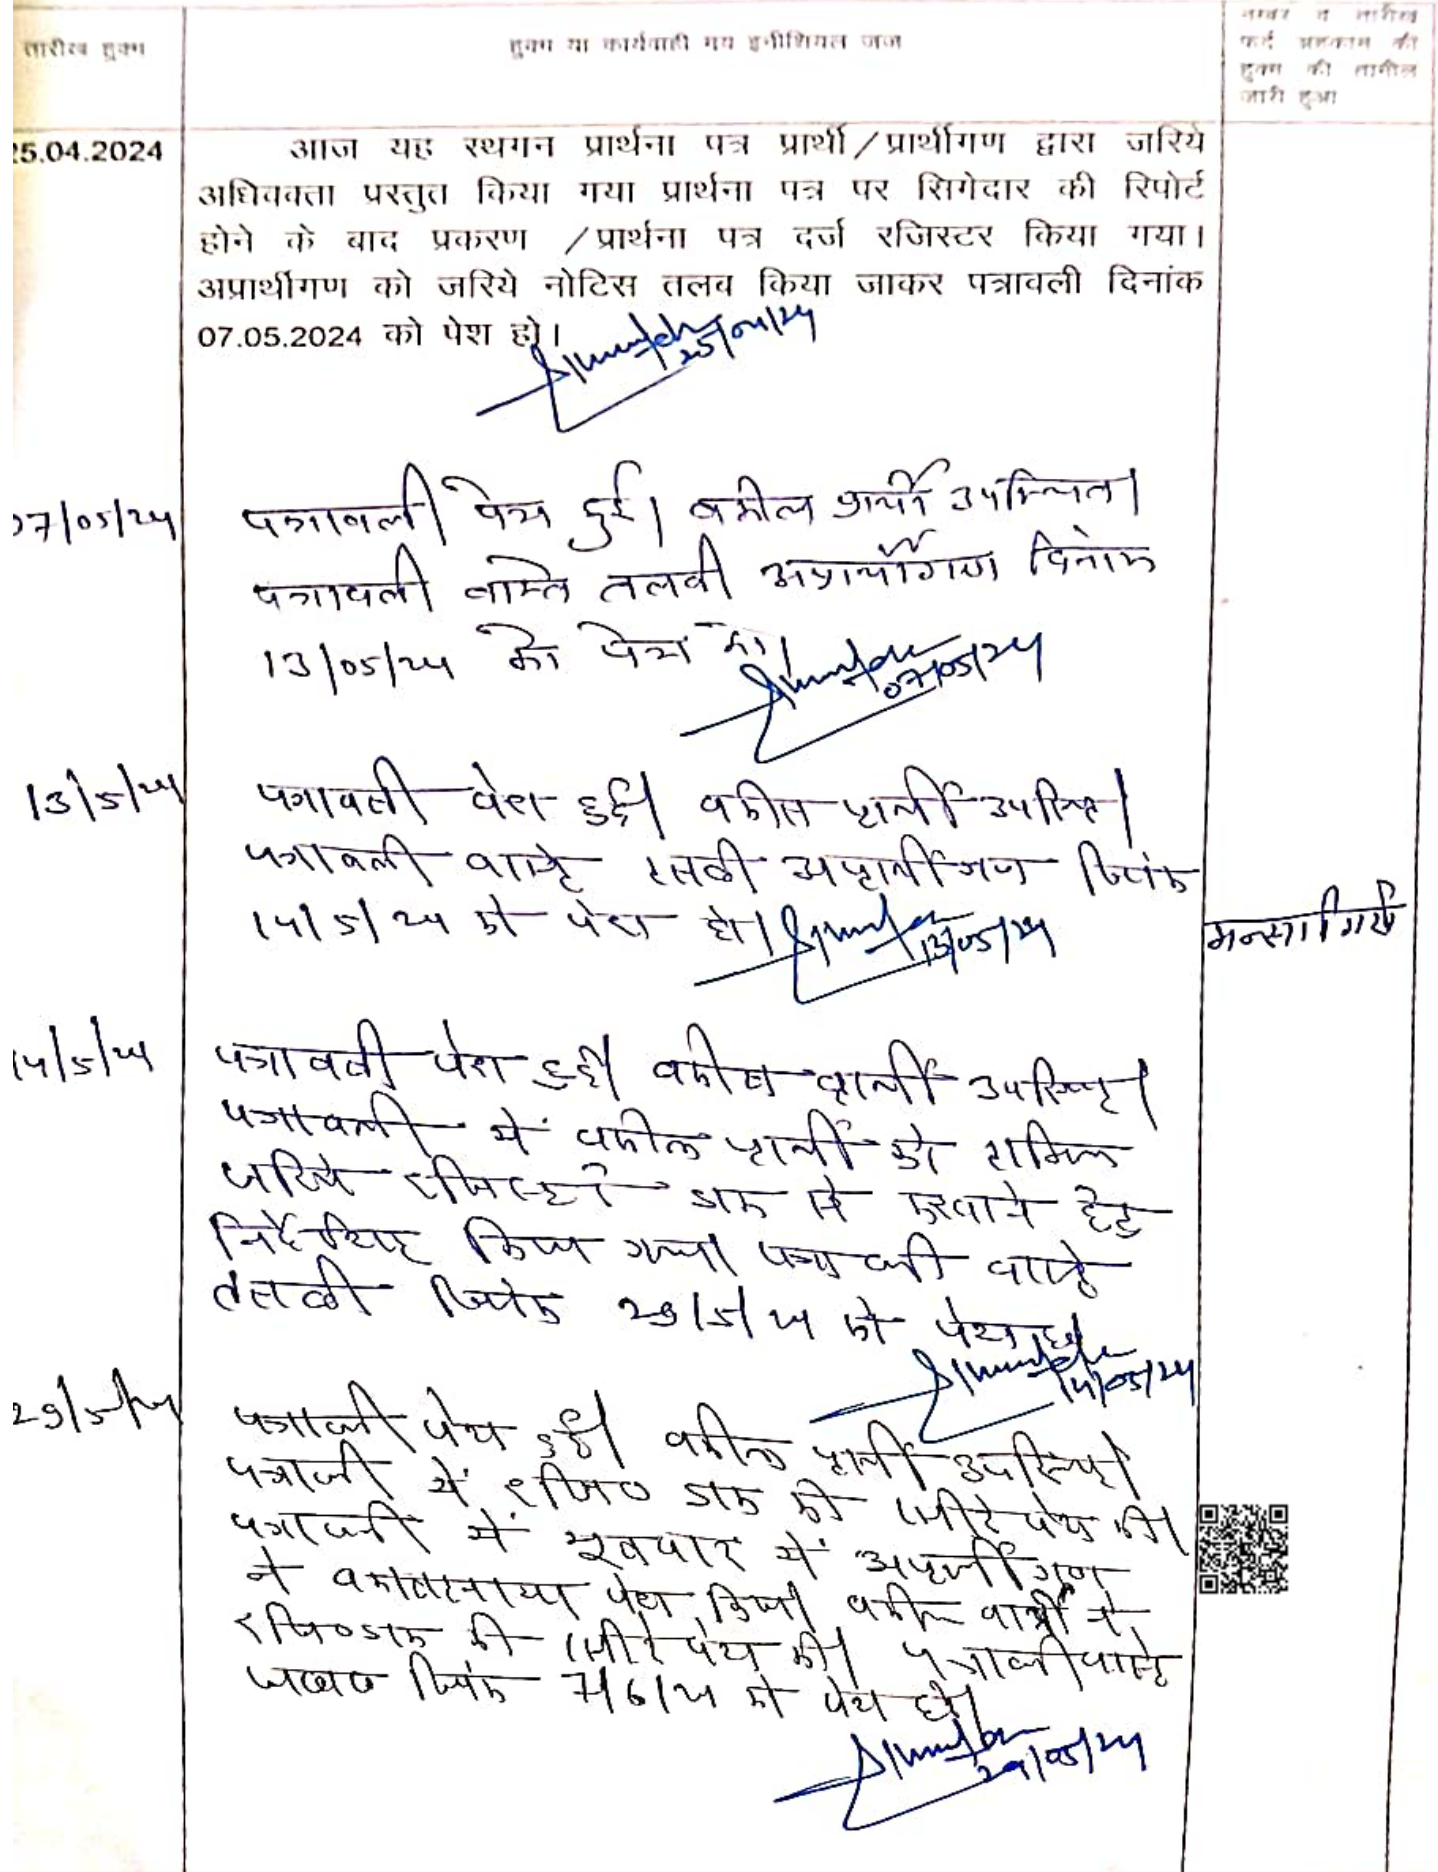 तारीख हुक्म
हुक्म या कार्यवाही मय इनीशियल जज
नम्बर व तारीख
फर्द अहकाम की
हुक्म की तामील
जारी हुआ
25.04.2024
आज यह स्थगन प्रार्थना पत्र प्रार्थी/प्रार्थीगण द्वारा जरिये
अधिवक्ता प्रस्तुत किया गया प्रार्थना पत्र पर सिगेदार की रिपोर्ट
होने के बाद प्रकरण /प्रार्थना पत्र दर्ज रजिस्टर किया गया।
अप्रार्थीगण को जरिये नोटिस तलब किया जाकर पत्रावली दिनांक
07.05.2024 को पेश हो।
25/04/24
07/05/24
पत्रावली पेश हुई। वकील प्रार्थी उपस्थित।
पत्रावली वास्ते तलवी अप्रार्थीगण दिनांक
13/05/24 को पेश हो।
07/05/24
13/5/24
पत्रावली पेश हुई। वकील प्रार्थी उपस्थित।
पत्रावली वास्ते तलबी अप्रार्थीगण दिनांक
14/5/24 को पेश हो।
13/05/24
14/5/24
पत्रावली पेश हुई। वकील प्रार्थी उपस्थित।
पत्रावली में वकील प्रार्थी को तामिल
जरिये रजिस्टर्ड डाक से करवाने हेतु
निर्देशित किया गया। पत्रावली वास्ते
तलबी दिनांक 29/5/24 को पेश हो।
14/05/24
29/5/24
पत्रावली पेश हुई। वकील प्रार्थी उपस्थित।
पत्रावली में रजि० डाक की रसीदे पेश की।
पत्रावली में में अप्रार्थीगण
ने वकालतनामा पेश किया। वकील प्रार्थी ने
रजि०डाक की रसीदे पेश की। पत्रावली वास्ते
जवाब दिनांक 7/6/24 को पेश हो।
29/05/24